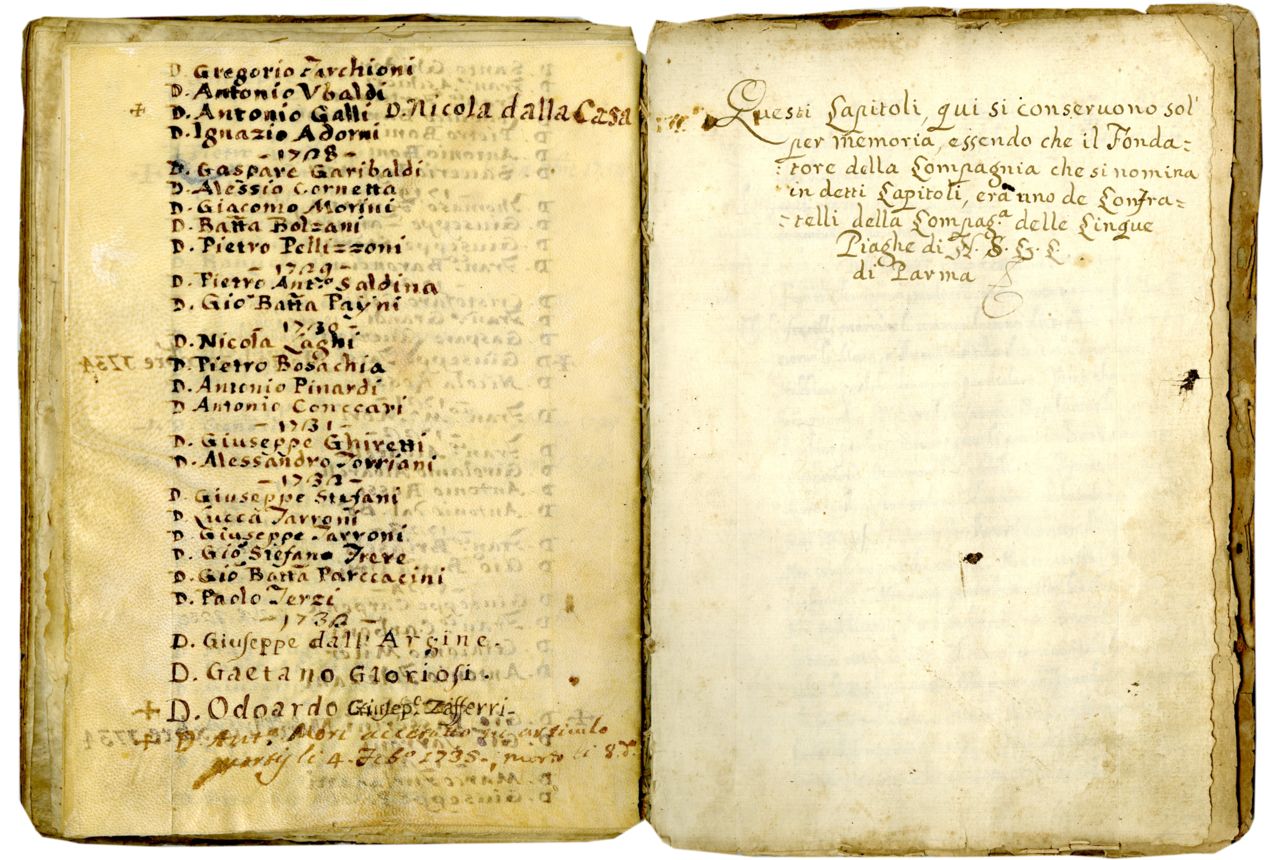 D. Gregorio Tarchioni
D. Antonio Vbaldi
+ D. Antonio Galli D. Nicola dalla Casa
D. Ignazio Adorni
- 1728 -
D. Gaspare Garibaldi
D. Alessio Cornetta
D. Giacomo Morini
D. Batta Bolzani
D. Pietro Pellizzoni
- 1729 -
D. Pietro Antº Saldina
D. Gio Batta Payni
- 1730 -
D. Nicola Zaghi
D. Pietro Bosachia
D. Antonio Pinardi
D. Antonio Conccari
- 1731 -
D. Giuseppe Ghiretti
D. Alessandro Torriani
- 1732 -
D. Giuseppe Stefani
D. Lucca Tarroni
D. Giuseppe Tarroni
D. Gio Stefano Treve
D. Gio Batta Parccacini
D. Paolo Terzi
D. Giuseppe dall'Argine.
D. Gaetano Gloriosi.
+ D. Odoardo Giusepᵉ Zafferri
+ D. Antº Mori accettato in articulo
li 4 Febº 1735, morto li 8. dº
Questi Capitoli, qui si conservono sol'
per memoria, essendo che il Fonda-
tore della Compagnia che si nomina
in detti Capitoli, era uno de Confra-
telli della Compagª delle Cinque
Piaghe di N. S. G. C
di Parma